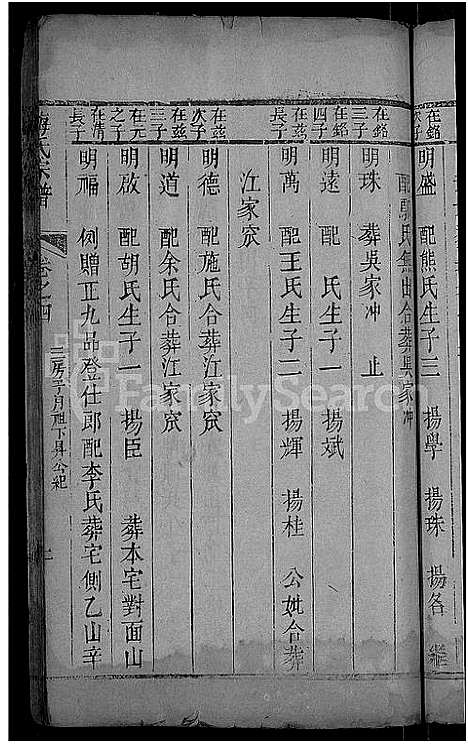 在銘次子
明盛 配熊氏生子三 揚學 揚珠 揚各 繼
配 氏焦山合葬吳家冲
在銘三子
明珠 葬吳家冲 止
在銘四子
明遠 配 氏生子一 揚斌
在茲長子
明萬 配王氏生子二 揚輝 揚桂 公妣合葬
江家㘭
在茲次子
明德 配施氏合葬江家㘭
在茲三子
明道 配余氏合葬江家㘭
在元之子
明啟 配胡氏生子一 揚臣 葬本宅對面山
在清長子
明福 例贈正九品登仕郎配李氏葬宅側乙山辛
氏宗譜
卷之四
三房子月祖下昇公紀
FamilySearch